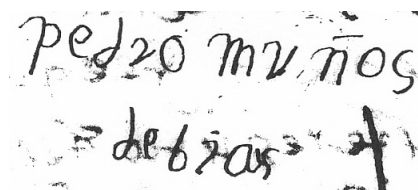 pedro muños
=debras=